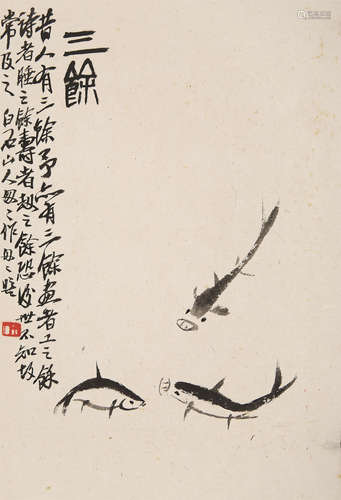 三餘
昔人有三餘予亦有三餘畫者工之餘
詩者睡之餘壽者劫之餘恐後世不知故
常及之 白石山人毋毋作毋毋題